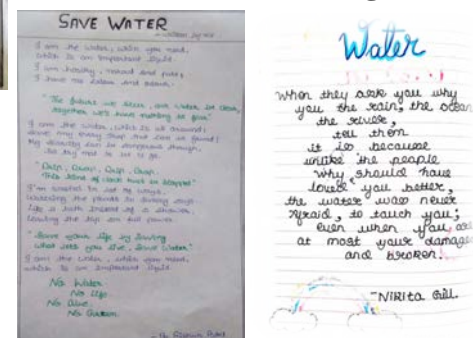 SAVE WATER
I am the water, which you need,
which is an important liquid
I am healthy, natural and pure,
I have no colour and
"The future we seen, our water is clean,
together we's have nothing to give"
I am the water, which is all around,
save my every drop
My scarcity can be dangerous though,
So try not to let it go.
"Drip, Drop, Drip, Drop,
This kind of leak must be stopped"
I'm wasted in lot of ways,
watering the plants in sunny days.
Life a bath instead of a shower,
Leaving the tap on full power.
"Save your life by saving
what lets you live, Save Water."
I am the water, which you need,
which is an important liquid
No Water.
No life
No Blue.
No Green.
Water
When they ask you why
you the rain, the ocean
the river,
tell them
it is because
unlike the people
why should have
loved you better,
the water was never
afraid, to touch you;
even when you
at most your damage
and broken.
-Nikita Gill.